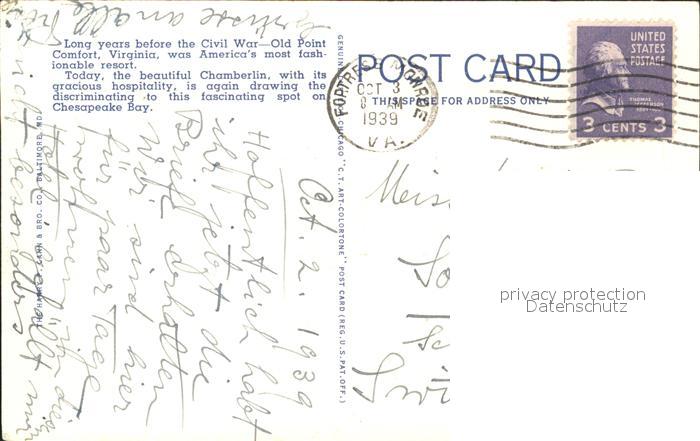 Long years before the Civil War—Old Point
Comfort, Virginia, was America's most fash-
ionable resort.
Today, the beautiful Chamberlin, with its
gracious hospitality, is again drawing the
discriminating to this fascinating spot on
Chesapeake Bay.
POST CARD
THIS SPACE FOR ADDRESS ONLY
FORTRESS MONROE
OCT 3
1939
VA.
UNITED
STATES
POSTAGE
THOMAS
JEFFERSON
3 CENTS 3
CHICAGO "C.T. ART-COLORTONE" POST CARD (REG. U.S. PAT. OFF.)
& BRO. CO., BALTIMORE, MD.
Oct. 2. 1939
Hoffentlich habt
ihr jetzt die
Brief erhalten
Wir sind hier
für paar Tage
wohnen in die
Hotel, gefällt mir
nicht besonders
privacy protection
Datenschutz